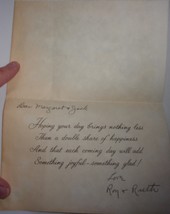 Dear Margaret & Jack
Hoping your day brings nothing less
Than a double share of happiness
And that each coming day will add
Something joyful—something glad!
Love
Roy & Ruth